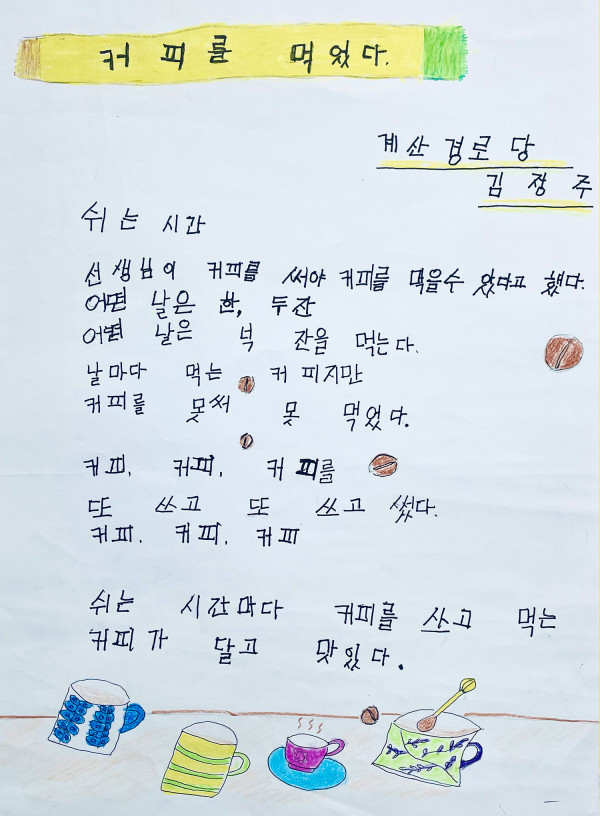 커피를 먹었다.
계산경로당
김장주
쉬는 시간
선생님이 커피를 써야 커피를 먹을수 있다고 했다.
어떤 날은 한, 두잔
어떤 날은 넉 잔을 먹는다.
날마다 먹는 커피지만
커피를 못써 못 먹었다.
커피, 커피, 커피를
또 쓰고 또 쓰고 썼다.
커피, 커피, 커피
쉬는 시간마다 커피를 쓰고 먹는
커피가 달고 맛있다.